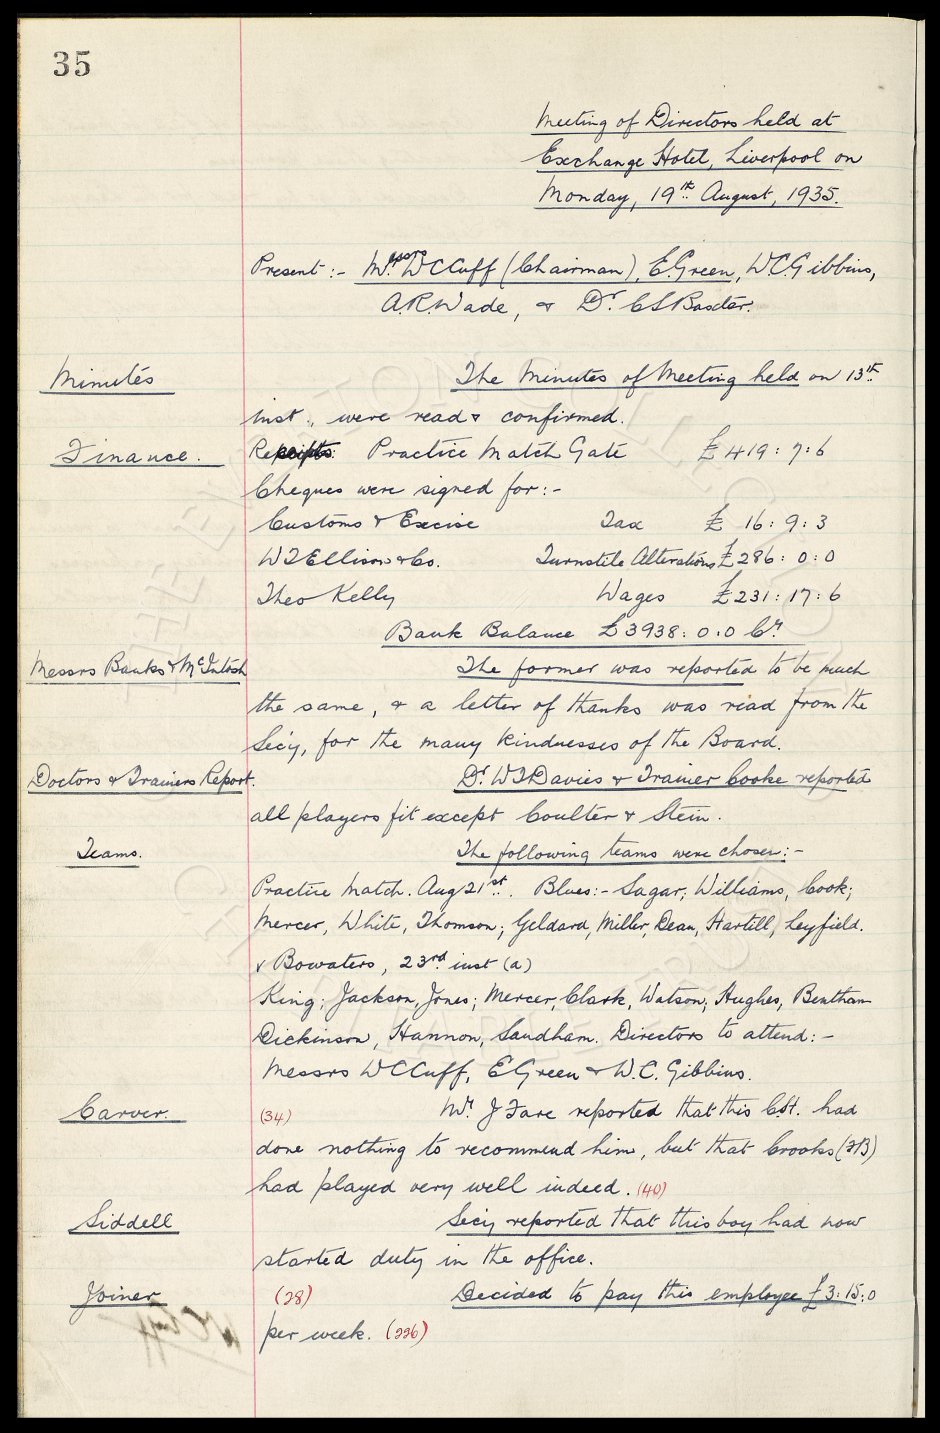 35
Meeting of Directors held at
Exchange Hotel, Liverpool on
Monday, 19th August, 1935.
Present :- Messrs W C Cuff (Chairman), E. Green, W.C. Gibbins,
A.R. Wade, & Dr. C S Baxter.
Minutes The Minutes of Meeting held on 13th
inst., were read & confirmed.
Finance. Receipts: Practice Match Gate £419 : 7 : 6
Cheques were signed for :-
Customs & Excise Tax £ 16 : 9 : 3
W J Ellison & Co. Turnstile Alterations £286 : 0 : 0
Theo Kelly Wages £231 : 17 : 6
Bank Balance £3938 : 0 : 0 Cr
Messrs Banks & McIntosh The former was reported to be much
the same, & a letter of thanks was read from the
Sec'y, for the many kindnesses of the Board.
Doctors & Trainers Report. Dr. W J Davies & Trainer Cooke reported
all players fit except Coulter & Stein.
Teams. The following teams were chosen :-
Practice Match. Aug 21st. Blues :- Sagar; Williams, Cook;
Mercer, White, Thomson; Geldard, Miller, Dean, Hartill, Leyfield.
v Bowaters, 23rd inst (a)
King; Jackson, Jones; Mercer, Clark, Watson; Hughes, Bentham
Dickinson, Hannon, Sandham. Directors to attend :-
Messrs W C Cuff, E Green & W.C. Gibbins.
Carver. (34) Mr J Fare reported that this C.H. had
done nothing to recommend him, but that Crooks (FB)
had played very well indeed. (40)
Siddell Sec'y reported that this boy had now
started duty in the office.
Joiner (28) Decided to pay this employee £3 : 15 : 0
per week. (226)